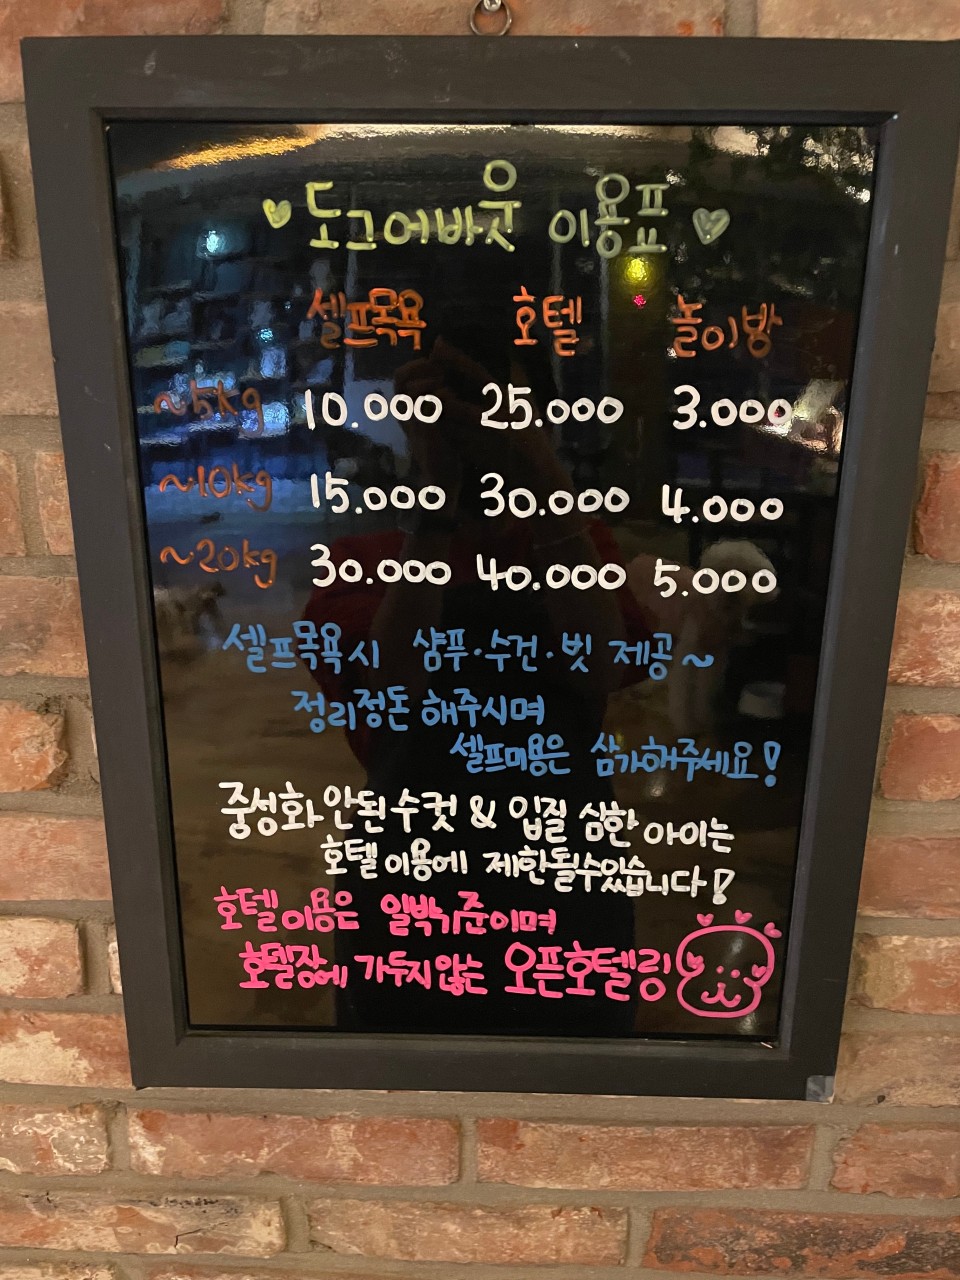 도그어바웃 이용표
셀프목욕 호텔 놀이방
~5kg 10.000 25.000 3.000
~10kg 15.000 30.000 4.000
~20kg 30.000 40.000 5.000
셀프목욕시 샴푸·수건·빗 제공~
정리정돈 해주시며
셀프미용은 삼가해주세요!
중성화 안된 수컷 & 입질 심한 아이는
호텔 이용에 제한될수있습니다!
호텔이용은 일박기준이며
호텔장에 가두지않는 오픈호텔링